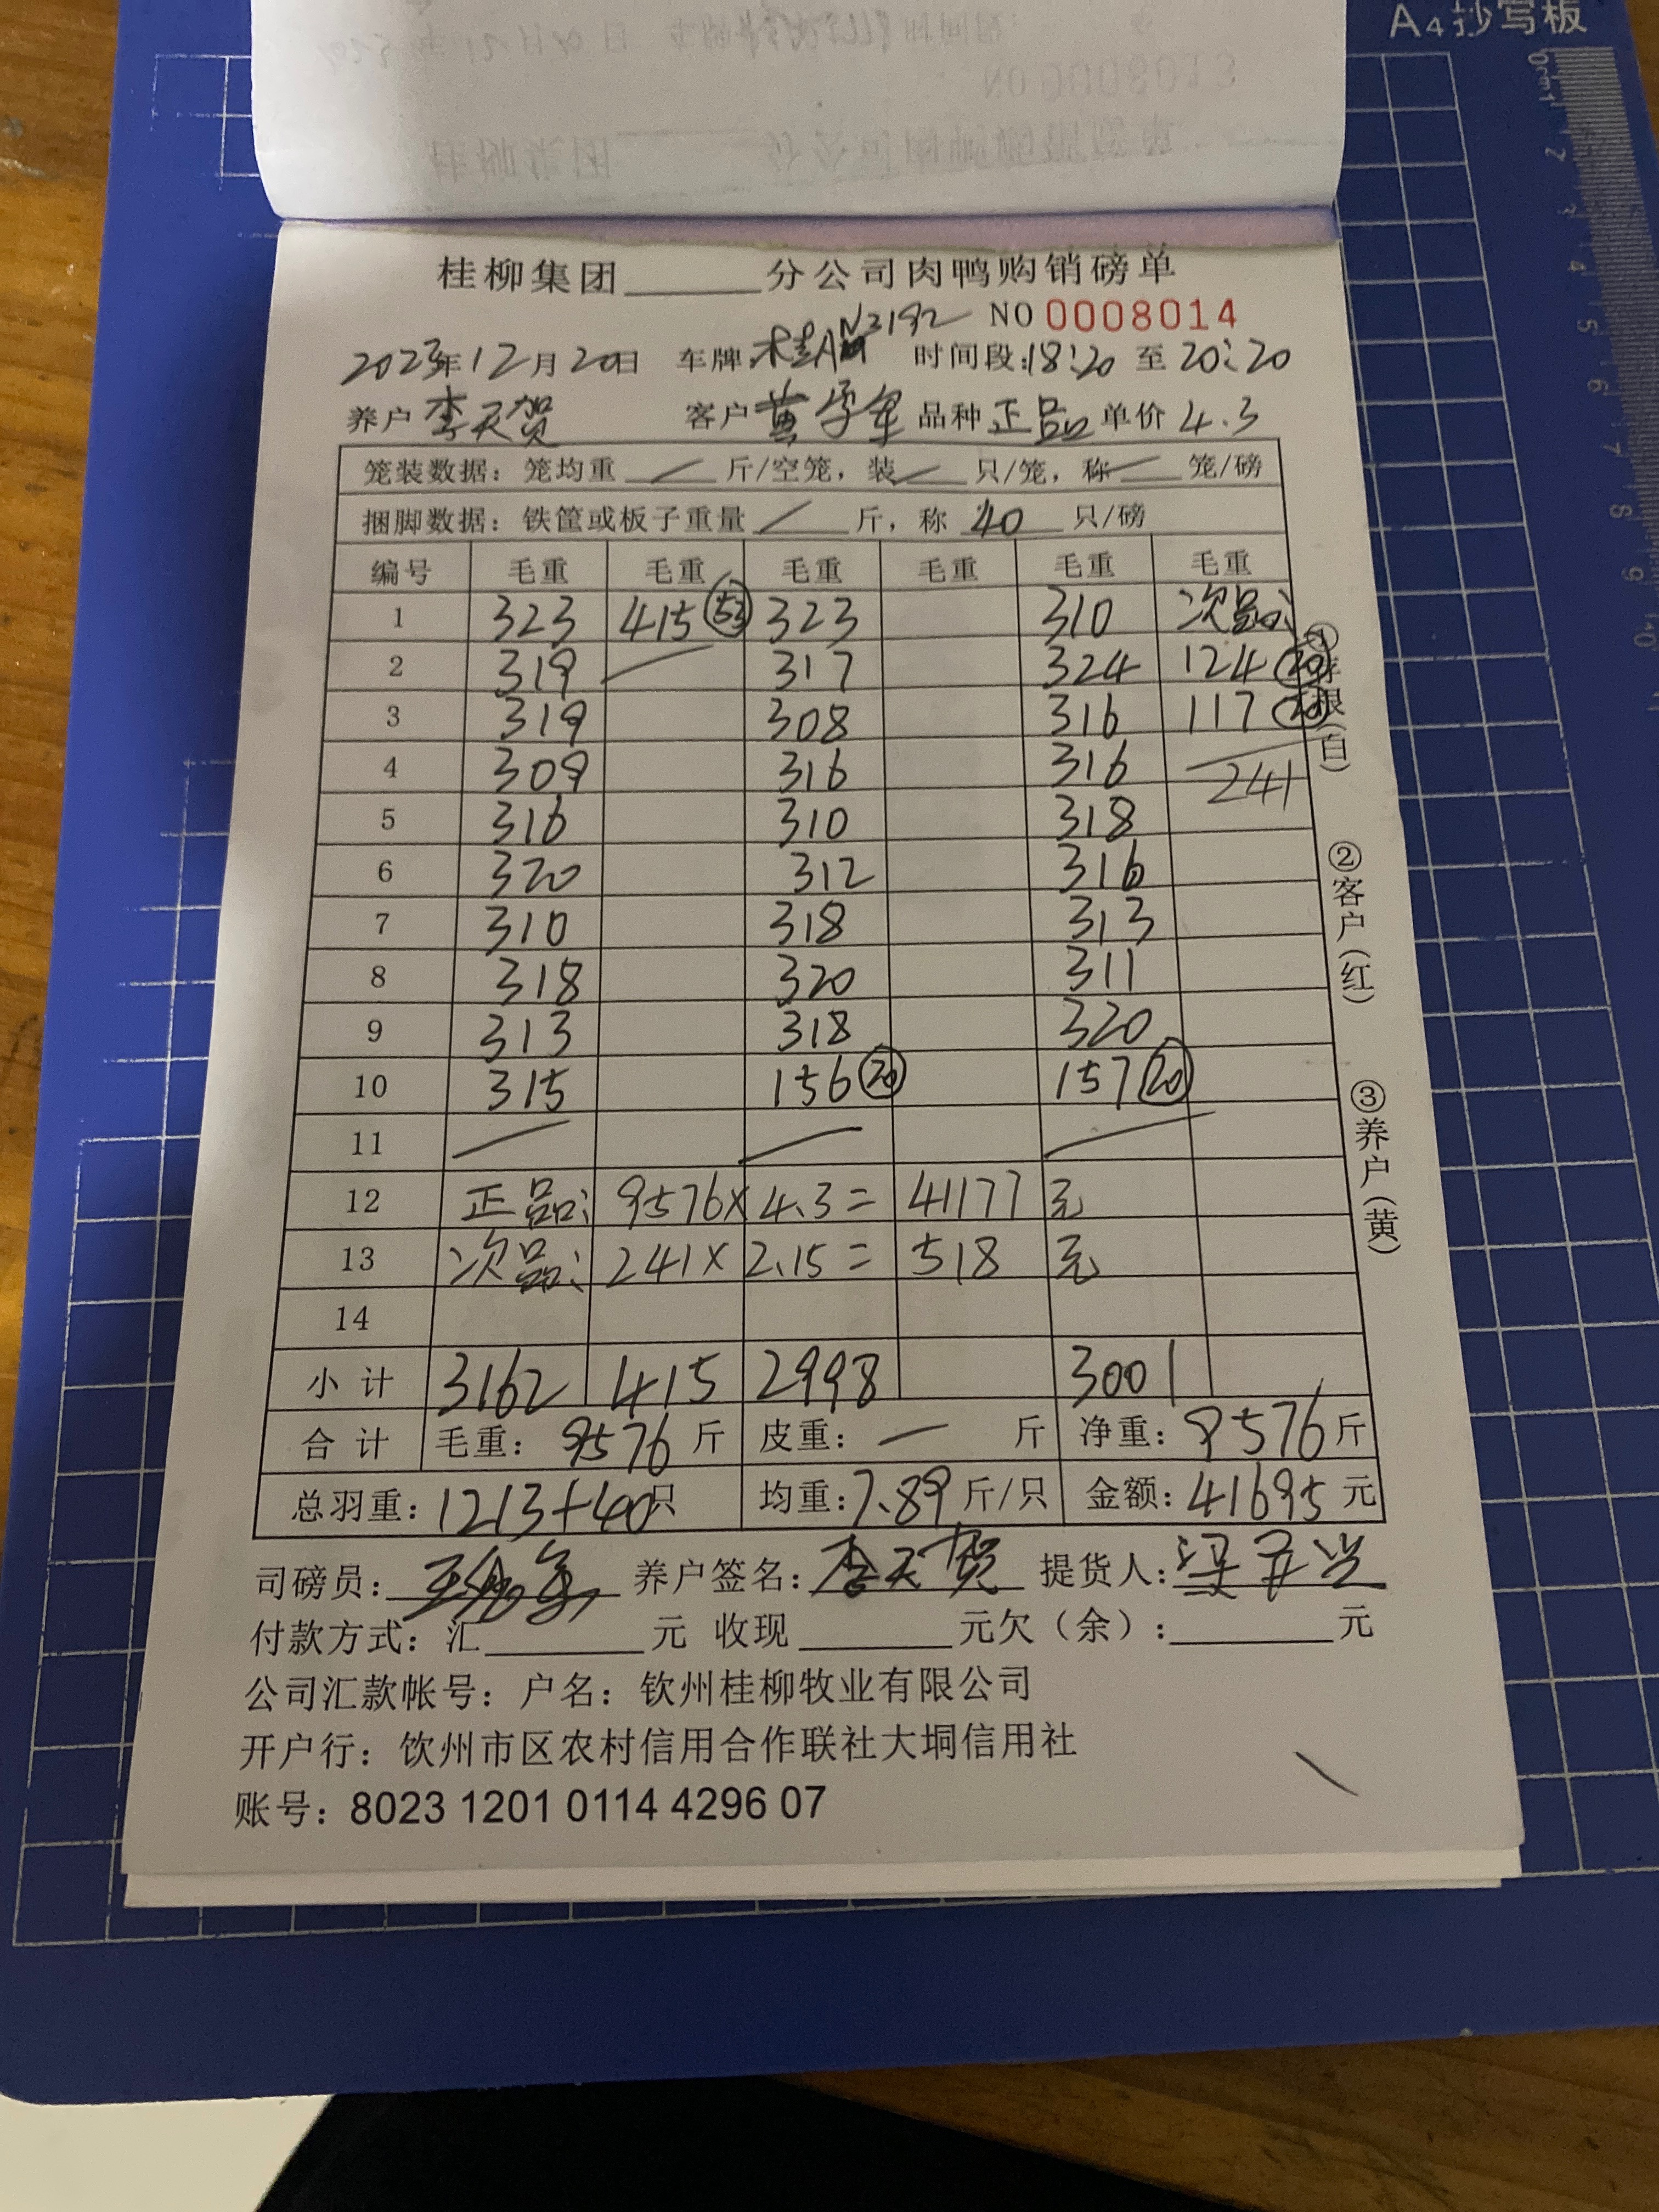 A4抄写板
NO 0008013
桂柳集团______分公司肉鸭购销磅单
NO 0008014
2023年12月20日 车牌:桂A N3192 时间段:18:20 至 20:20
养户 李天贺 客户 黄学军 品种 正品 单价 4.3
笼装数据：笼均重 / 斤/空笼，装 / 只/笼，称 / 笼/磅
捆脚数据：铁筐或板子重量 / 斤，称 40 只/磅
编号 毛重 毛重 毛重 毛重 毛重 毛重
1 323 415 (53) 323 310 次品:
2 319 317 324 124 (20)
3 319 308 316 117 (20)
4 309 316 316 241
5 316 310 318
6 320 312 316
7 310 318 313
8 318 320 311
9 313 318 320
10 315 156 (20) 157 (20)
11
12 正品: 9576 × 4.3 = 41177 元
13 次品: 241 × 2.15 = 518 元
14
小计 3162 415 2998 3001
合计 毛重：9576 斤 皮重：— 斤 净重：9576 斤
总羽重：1213+40只 均重：7.89 斤/只 金额：41695 元
①存根(白) ②客户(红) ③养户(黄)
司磅员： 养户签名：李天贺 提货人：
付款方式：汇______元 收现______元欠（余）:______元
公司汇款帐号：户名：钦州桂柳牧业有限公司
开户行：饮州市区农村信用合作联社大垌信用社
账号：8023 1201 0114 4296 07